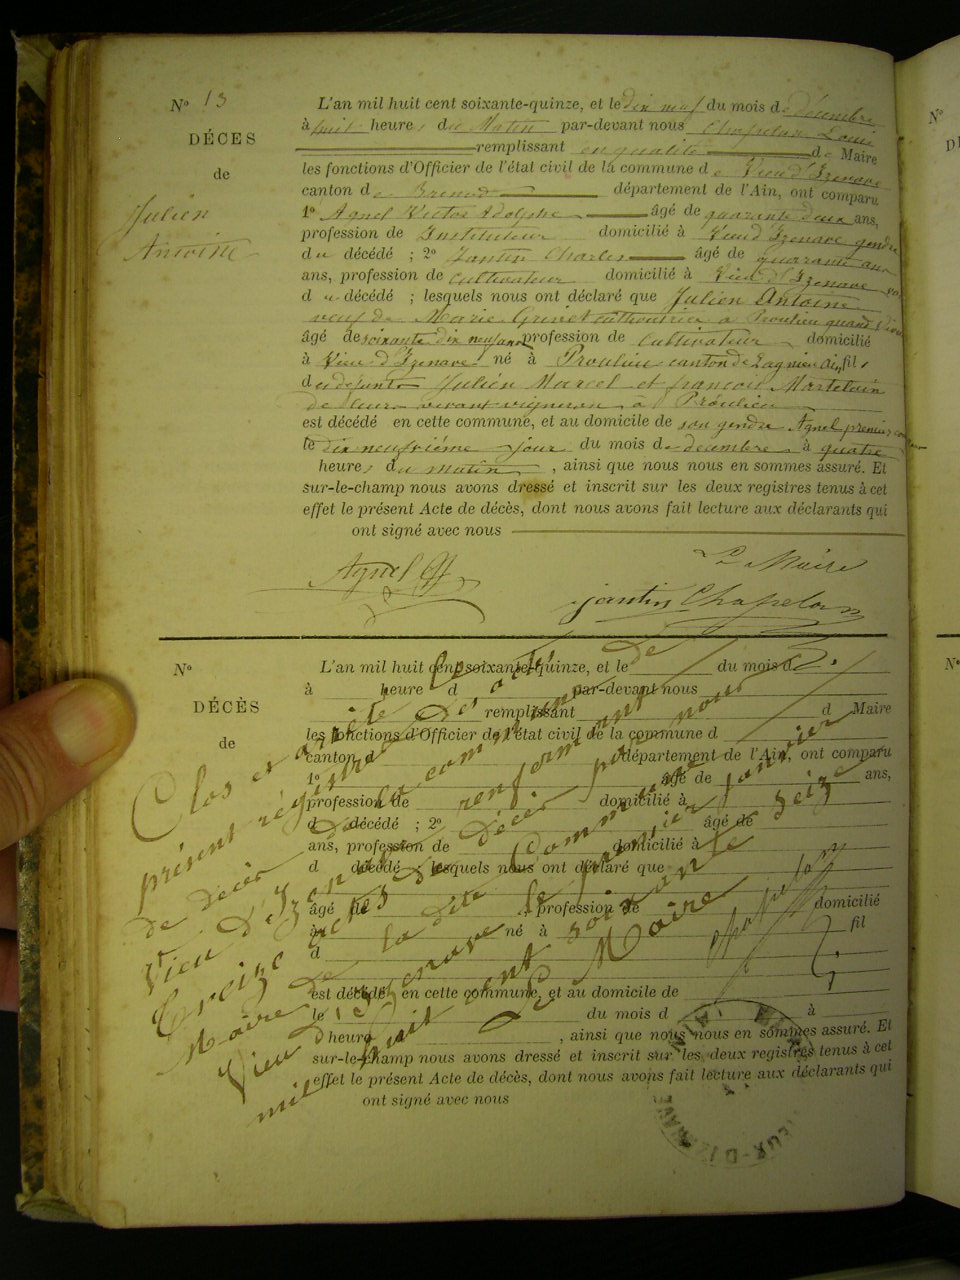 Nº 13
DÉCES
de
Julien
Antoine
L'an mil huit cent soixante-quinze, et le dix neuf du mois de décembre
à huit heures du Matin par-devant nous Chapelan Louis
remplissant en qualité de Maire
les fonctions d'Officier de l'état civil de la commune de Vieu d'Izenave
canton de Brenod département de l'Ain, ont comparu
1º Agnel Victor Adolphe âgé de quarante deux ans,
profession de Instituteur domicilié à Vieu d'Izenave gendre
du décédé ; 2º Jantin Charles âgé de quarante ans
ans, profession de cultivateur domicilié à Vieu d'Izenave
d u décédé ; lesquels nous ont déclaré que Julien Antoine
veuf de Marie Grivet cultivatrice à Proulieu quand
âgé de soixante dix neuf ans profession de Cultivateur domicilié
à Vieu d'Izenave né à Proulieu canton de Lagnieu Ain fils
des defunts Julien Marcel et françois Martelain
de leur vivant vigneron à Proulieu
est décédé en cette commune, et au domicile de son gendre Agnel premier
le dix neufvième jour du mois de decembre à quatre
heures du matin, ainsi que nous nous en sommes assuré. Et
sur-le-champ nous avons dressé et inscrit sur les deux registres tenus à cet
effet le présent Acte de décès, dont nous avons fait lecture aux déclarants qui
ont signé avec nous
Agnel
Le Maire
Jantin Chapelan
Nº
DÉCÈS
de
L'an mil huit cent soixante-quinze, et le du mois d
à heure d par-devant nous
remplissant d Maire
les fonctions d'Officier de l'état civil de la commune d
canton d département de l'Ain, ont comparu
1º âgé de ans,
profession de domicilié à
d décédé ; 2º âgé de
ans, profession de domicilié à
d décédé ; lesquels nous ont déclaré que
âgé de profession de domicilié
à né à fil
d
est décédé en cette commune, et au domicile de
le du mois d à
heure d , ainsi que nous nous en sommes assuré. Et
sur-le-champ nous avons dressé et inscrit sur les deux registres tenus à cet
effet le présent Acte de décès, dont nous avons fait lecture aux déclarants qui
ont signé avec nous
Clos et arrêté le
présent régistre des actes
de décès de la commune de
Vieu d'Izenave renfermant
treize actes de décès par nous
Maire de la dite commune
Vieu d'Izenave le premier janvier
mil huit cent soixante seize
Le Maire
Chapelan
VIEUX-D'IZENAVE